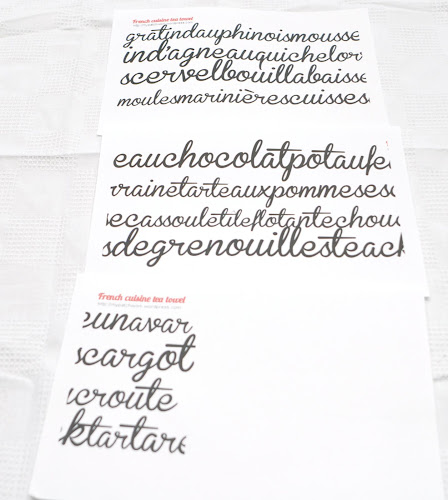 French cuisine tea towel
gratindauphinoismousse
ind'agneauquichelor
scervelbouillabaisse
moulesmarinièrescuisses
eauchocolatpotaufe
vrainetarteauxpommeses
ecassouletileflotantechou
sdegrenouillesteack
French cuisine tea towel
eunavar
scargot
croute
ktartare